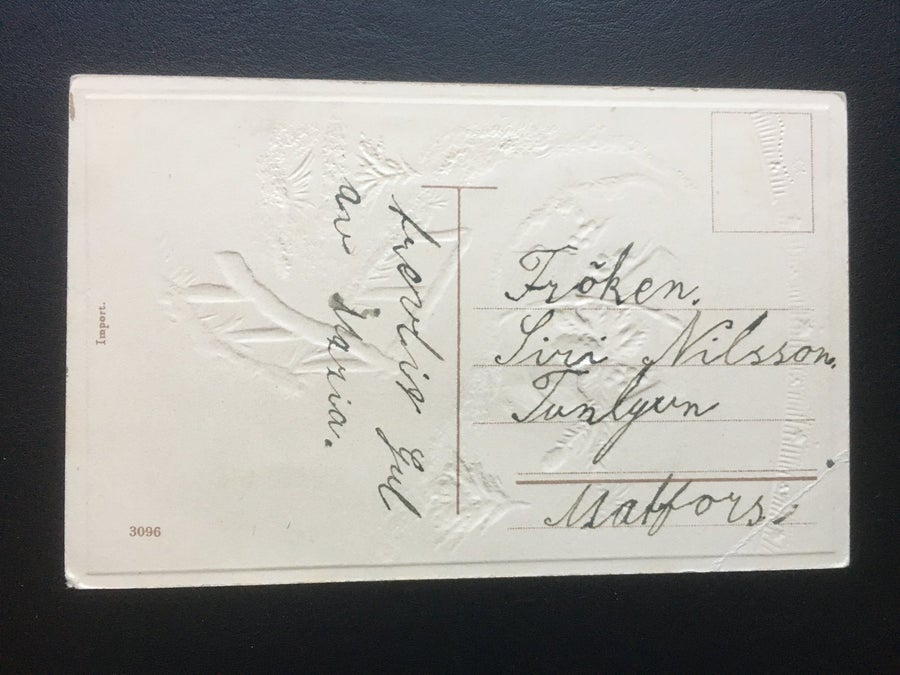 trevlig Jul
av Maria.
Fröken.
Siri Nilsson.
Tunbyn
Matfors.
Import.
3096